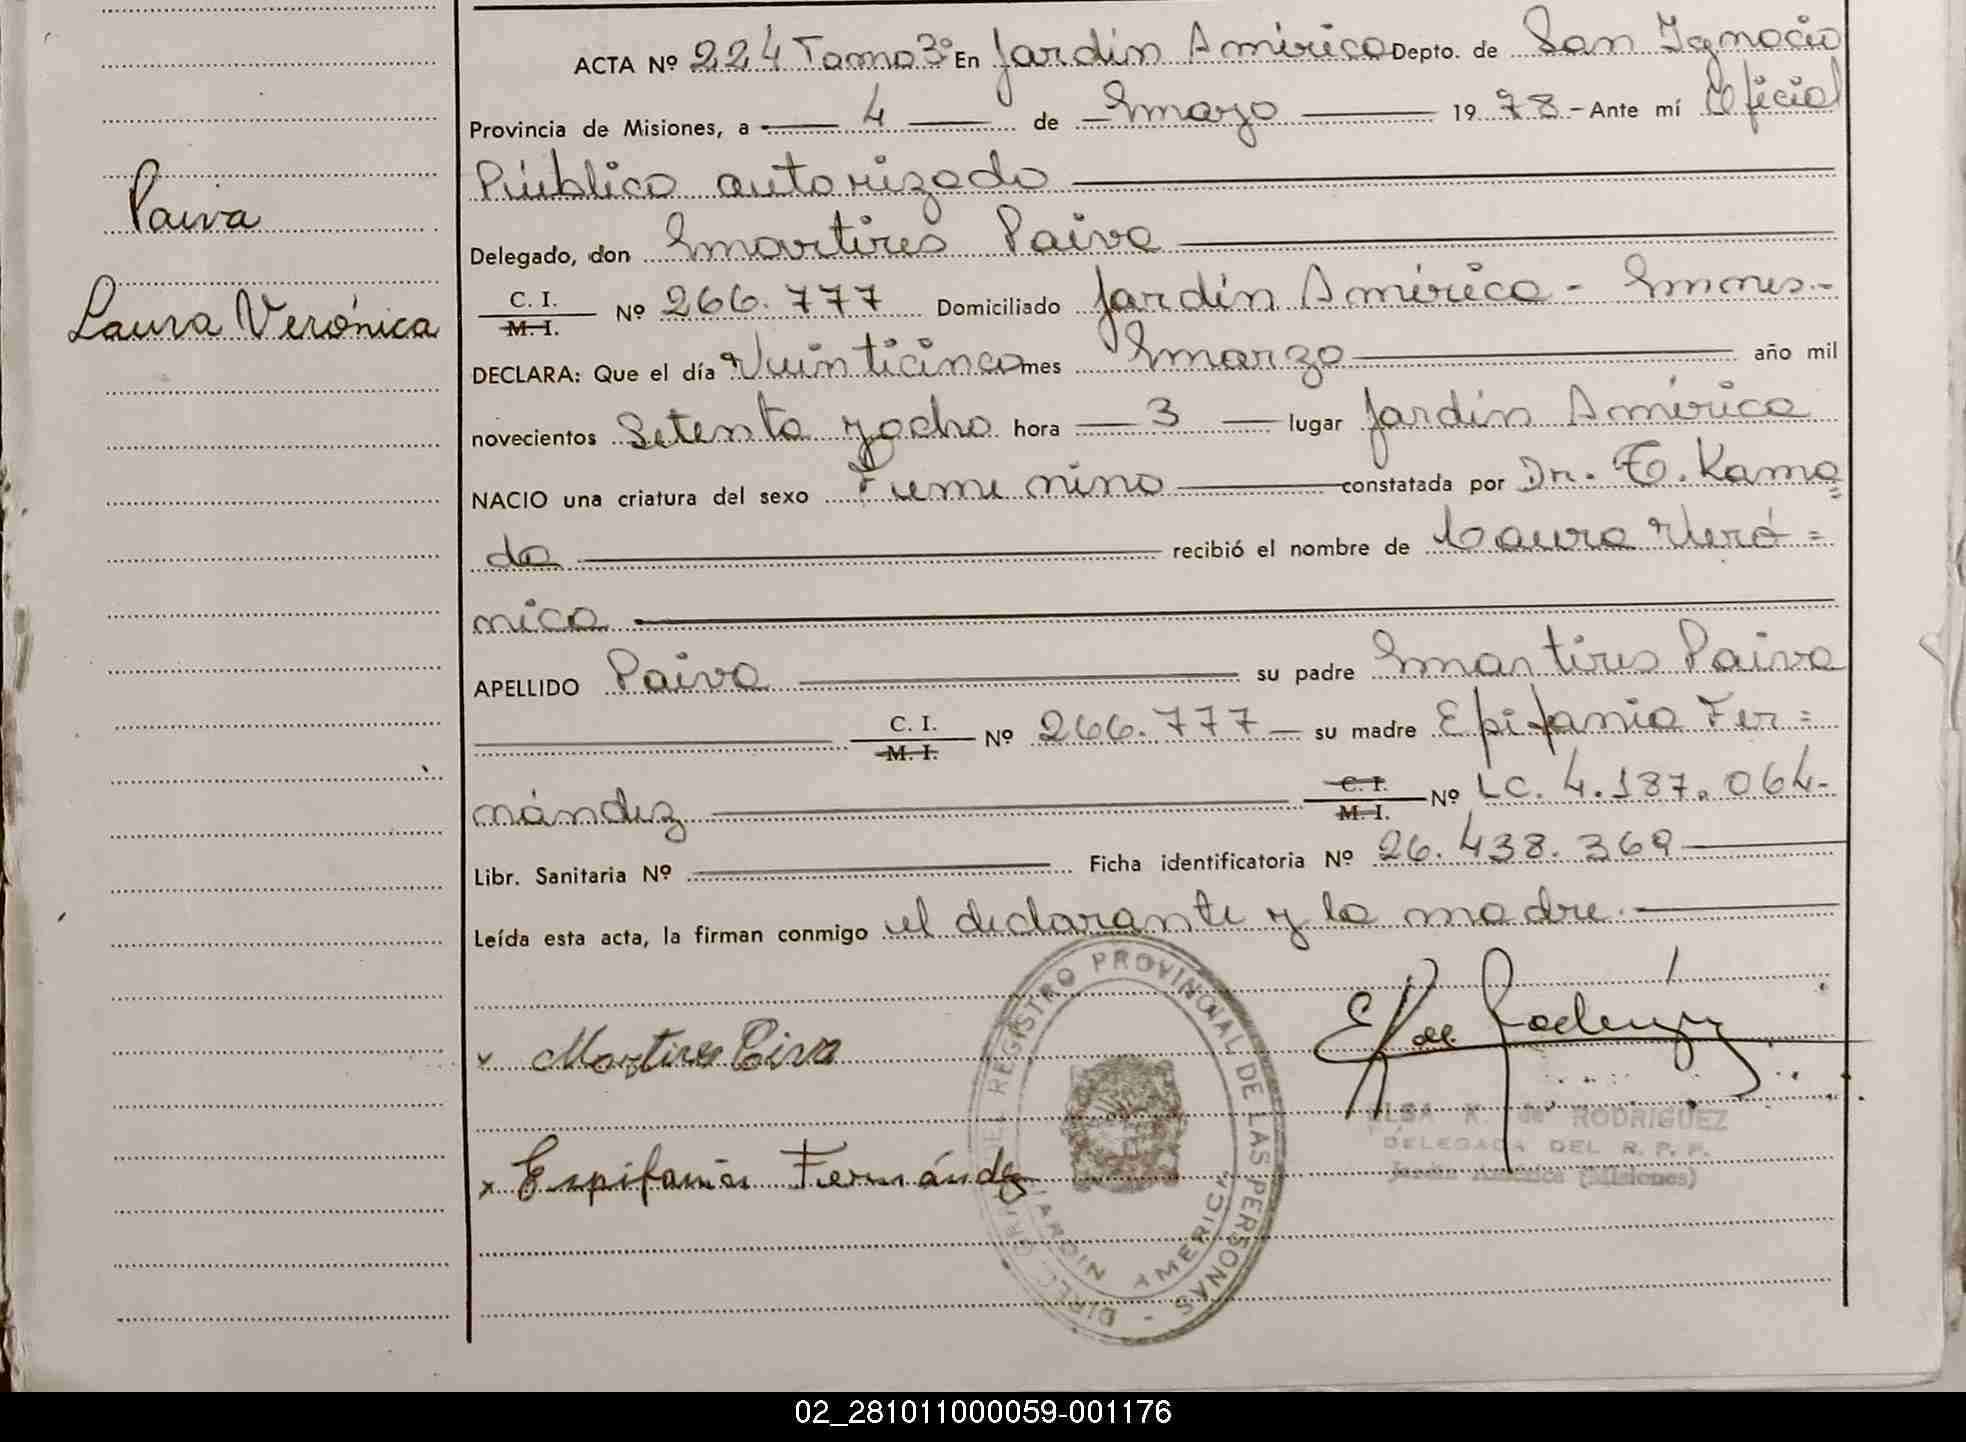 ACTA Nº 224 Tomo 3º En Jardín América Depto. de San Ignacio
Provincia de Misiones, a 4 de Mayo 1978 - Ante mí Oficial
Público autorizado
Paiva
Delegado, don Martires Paiva
Laura Verónica
C. I. M. I. Nº 266.777 Domiciliado Jardín América - Mnes -
DECLARA: Que el día Veinticinco mes Marzo año mil
novecientos Setenta y ocho hora 3 lugar Jardín América
NACIO una criatura del sexo Femenino constatada por Dr. T. Kama=
da recibió el nombre de Laura Veró=
nica
APELLIDO Paiva su padre Martires Paiva
C. I. M. I. Nº 266.777 - su madre Epifania Fer=
nández C. I. M. I. Nº LC. 4.187.064-
Libr. Sanitaria Nº Ficha identificatoria Nº 26.438.369
Leída esta acta, la firman conmigo el declarante y la madre.-
x Martires Paiva
x Epifania Fernández
REGISTRO PROVINCIAL DE LAS PERSONAS
JARDIN AMERICA
ELSA K. de RODRIGUEZ
DELEGADA DEL R. P. P.
Jardín América (Misiones)
02_281011000059-001176